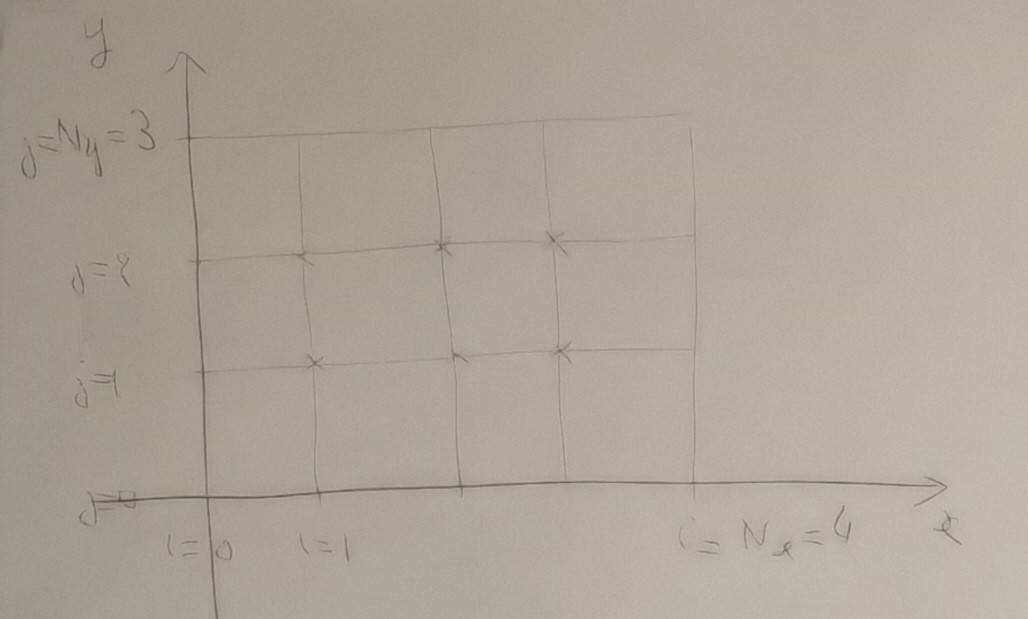 y
j=Ny=3
j=2
j=1
j=0
i=0 i=1 i=Nx=4 x